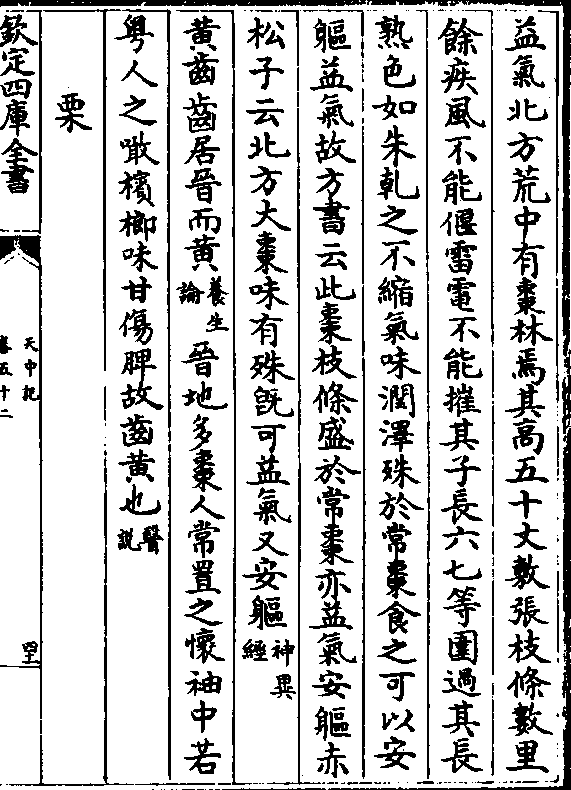 益氣北方荒中有棗林焉其髙五十丈敷張枝條數里
餘疾風不能偃雷電不能摧其子長六七等圍過其長
熟色如朱乹之不縮氣味潤澤殊於常棗食之可以安
軀益氣故方書云此棗枝條盛於常棗亦益氣安軀赤
松子云北方大棗味有殊旣可益氣又安軀神異經
黄齒 齒居晉而黄養生論 晉地多棗人常置之懷袖中若
粤人之噉檳榔味甘傷脾故齒黄也醫説
栗
欽定四庫全書
天中記
卷五十二